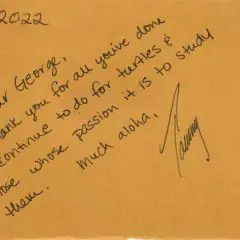 2022
ar George,
ank you for all you've done
continue to do for turtles &
ose whose passion it is to study
them. Much aloha,
Tammy